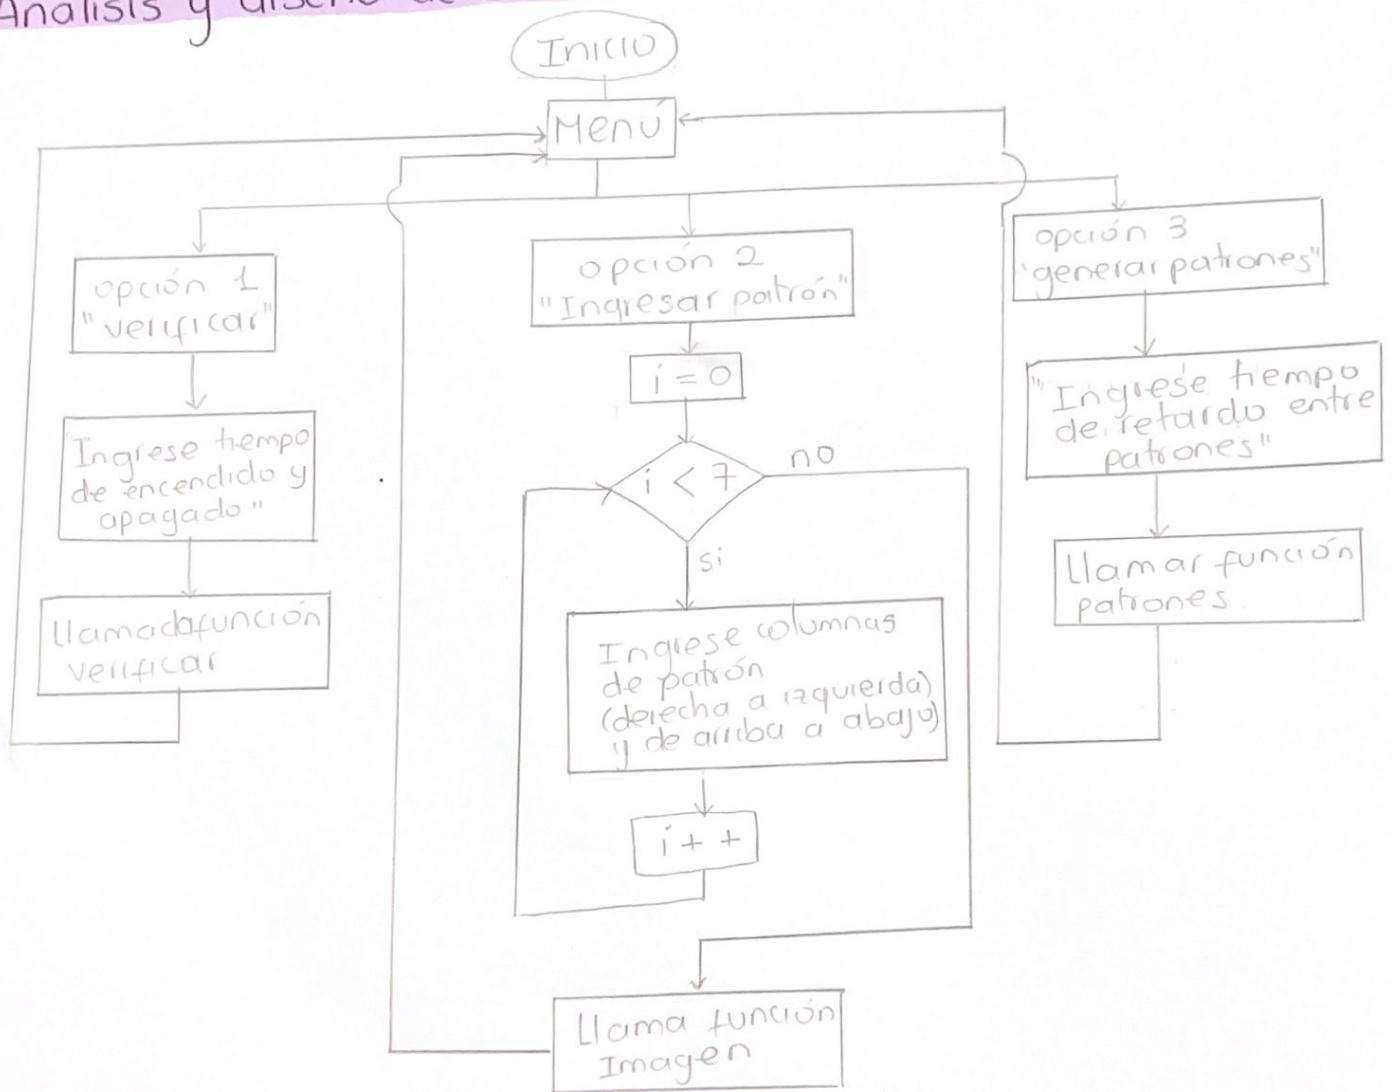 Análisis y diseño de
Inicio
Menú
opción 1
"verificar"
"Ingrese tiempo
de encendido y
apagado"
Llamada función
verificar
opción 2
"Ingresar patrón"
i = 0
i < 7
no
si
Ingrese columnas
de patrón
(derecha a izquierda)
y de arriba a abajo)
i + +
Llama función
Imagen
opción 3
"generar patrones"
"Ingrese tiempo
de retardo entre
patrones"
Llamar función
patrones.